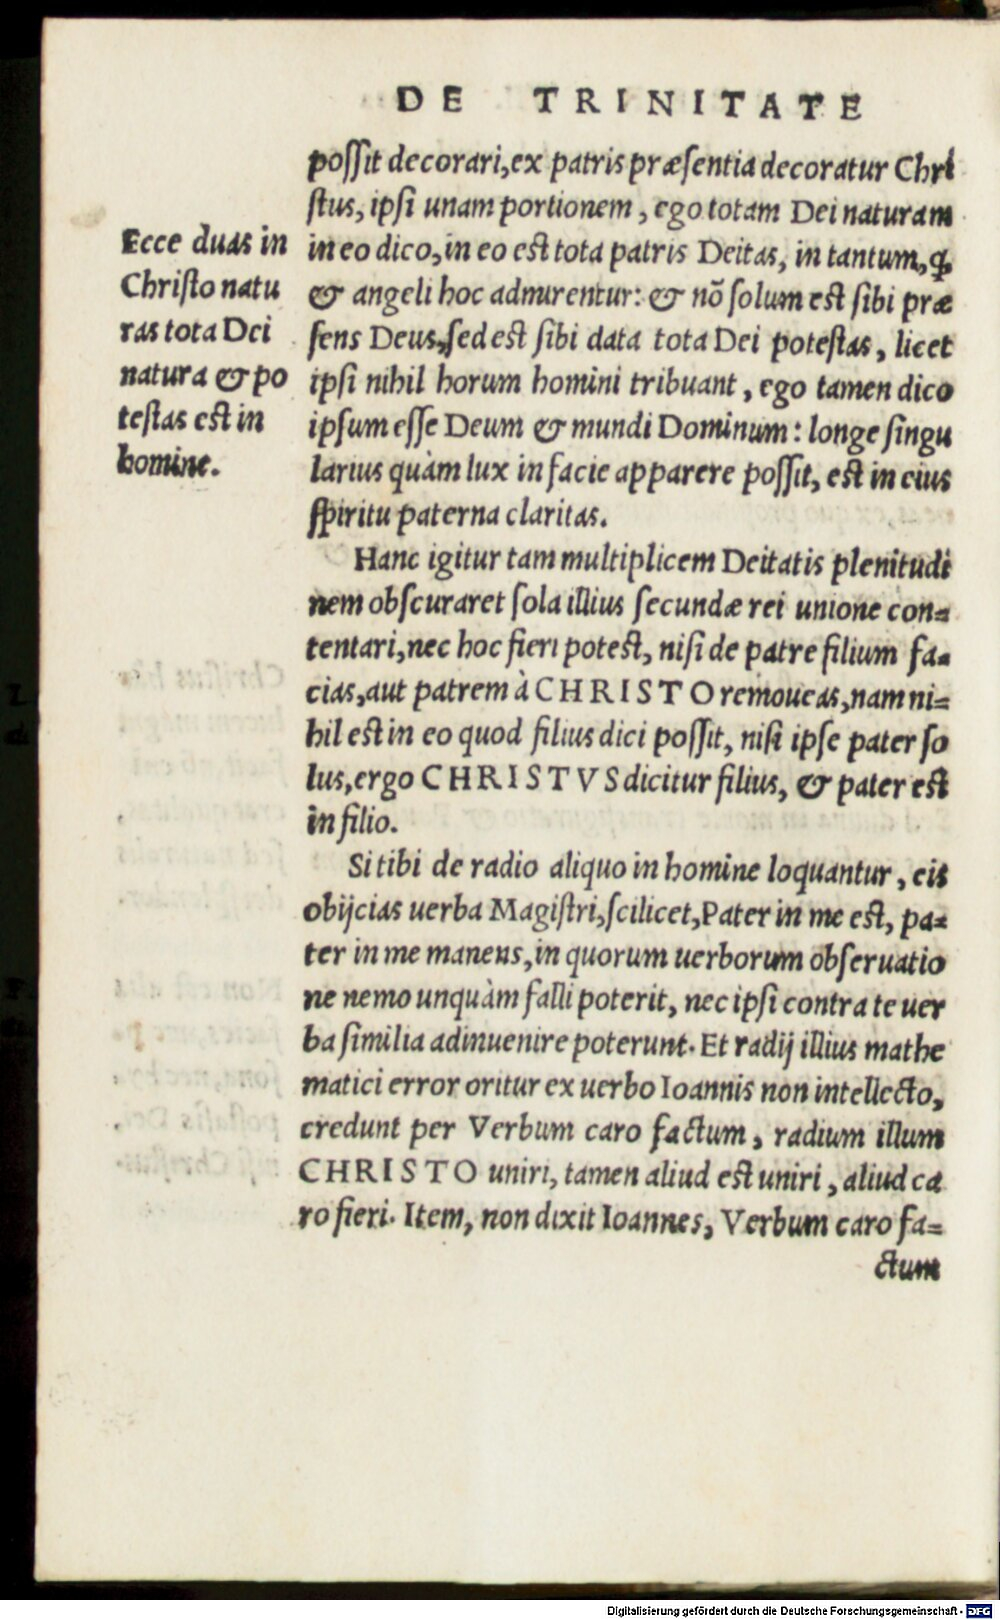 DE TRINITATE
possit decorari, ex patris præsentia decoratur Chri
stus, ipsi unam portionem, ego totam Dei naturam
in eo dico, in eo est tota patris Deitas, in tantum, ꝙ
& angeli hoc admirentur: & nō solum est sibi præ
sens Deus, sed est sibi data tota Dei potestas, licet
ipsi nihil horum homini tribuant, ego tamen dico
ipsum esse Deum & mundi Dominum: longe singu
larius quàm lux in facie apparere possit, est in eius
spiritu paterna claritas.
Ecce duas in
Christo natu
ras tota Dei
natura & po
testas est in
homine.
Hanc igitur tam multiplicem Deitatis plenitudi
nem obscuraret sola illius secundæ rei unione con=
tentari, nec hoc fieri potest, nisi de patre filium fa=
cias, aut patrem à CHRISTO remoueas, nam ni=
hil est in eo quod filius dici possit, nisi ipse pater so
lus, ergo CHRISTVS dicitur filius, & pater est
in filio.
Si tibi de radio aliquo in homine loquantur, eis
obijcias uerba Magistri, scilicet, Pater in me est, pa=
ter in me manens, in quorum uerborum obseruatio
ne nemo unquàm falli poterit, nec ipsi contra te uer
ba similia adinuenire poterunt. Et radij illius mathe
matici error oritur ex uerbo Ioannis non intellecto,
credunt per Verbum caro factum, radium illum
CHRISTO uniri, tamen aliud est uniri, aliud ca
ro fieri. Item, non dixit Ioannes, Verbum caro fa=
ctum
Digitalisierung gefördert durch die Deutsche Forschungsgemeinschaft - DFG